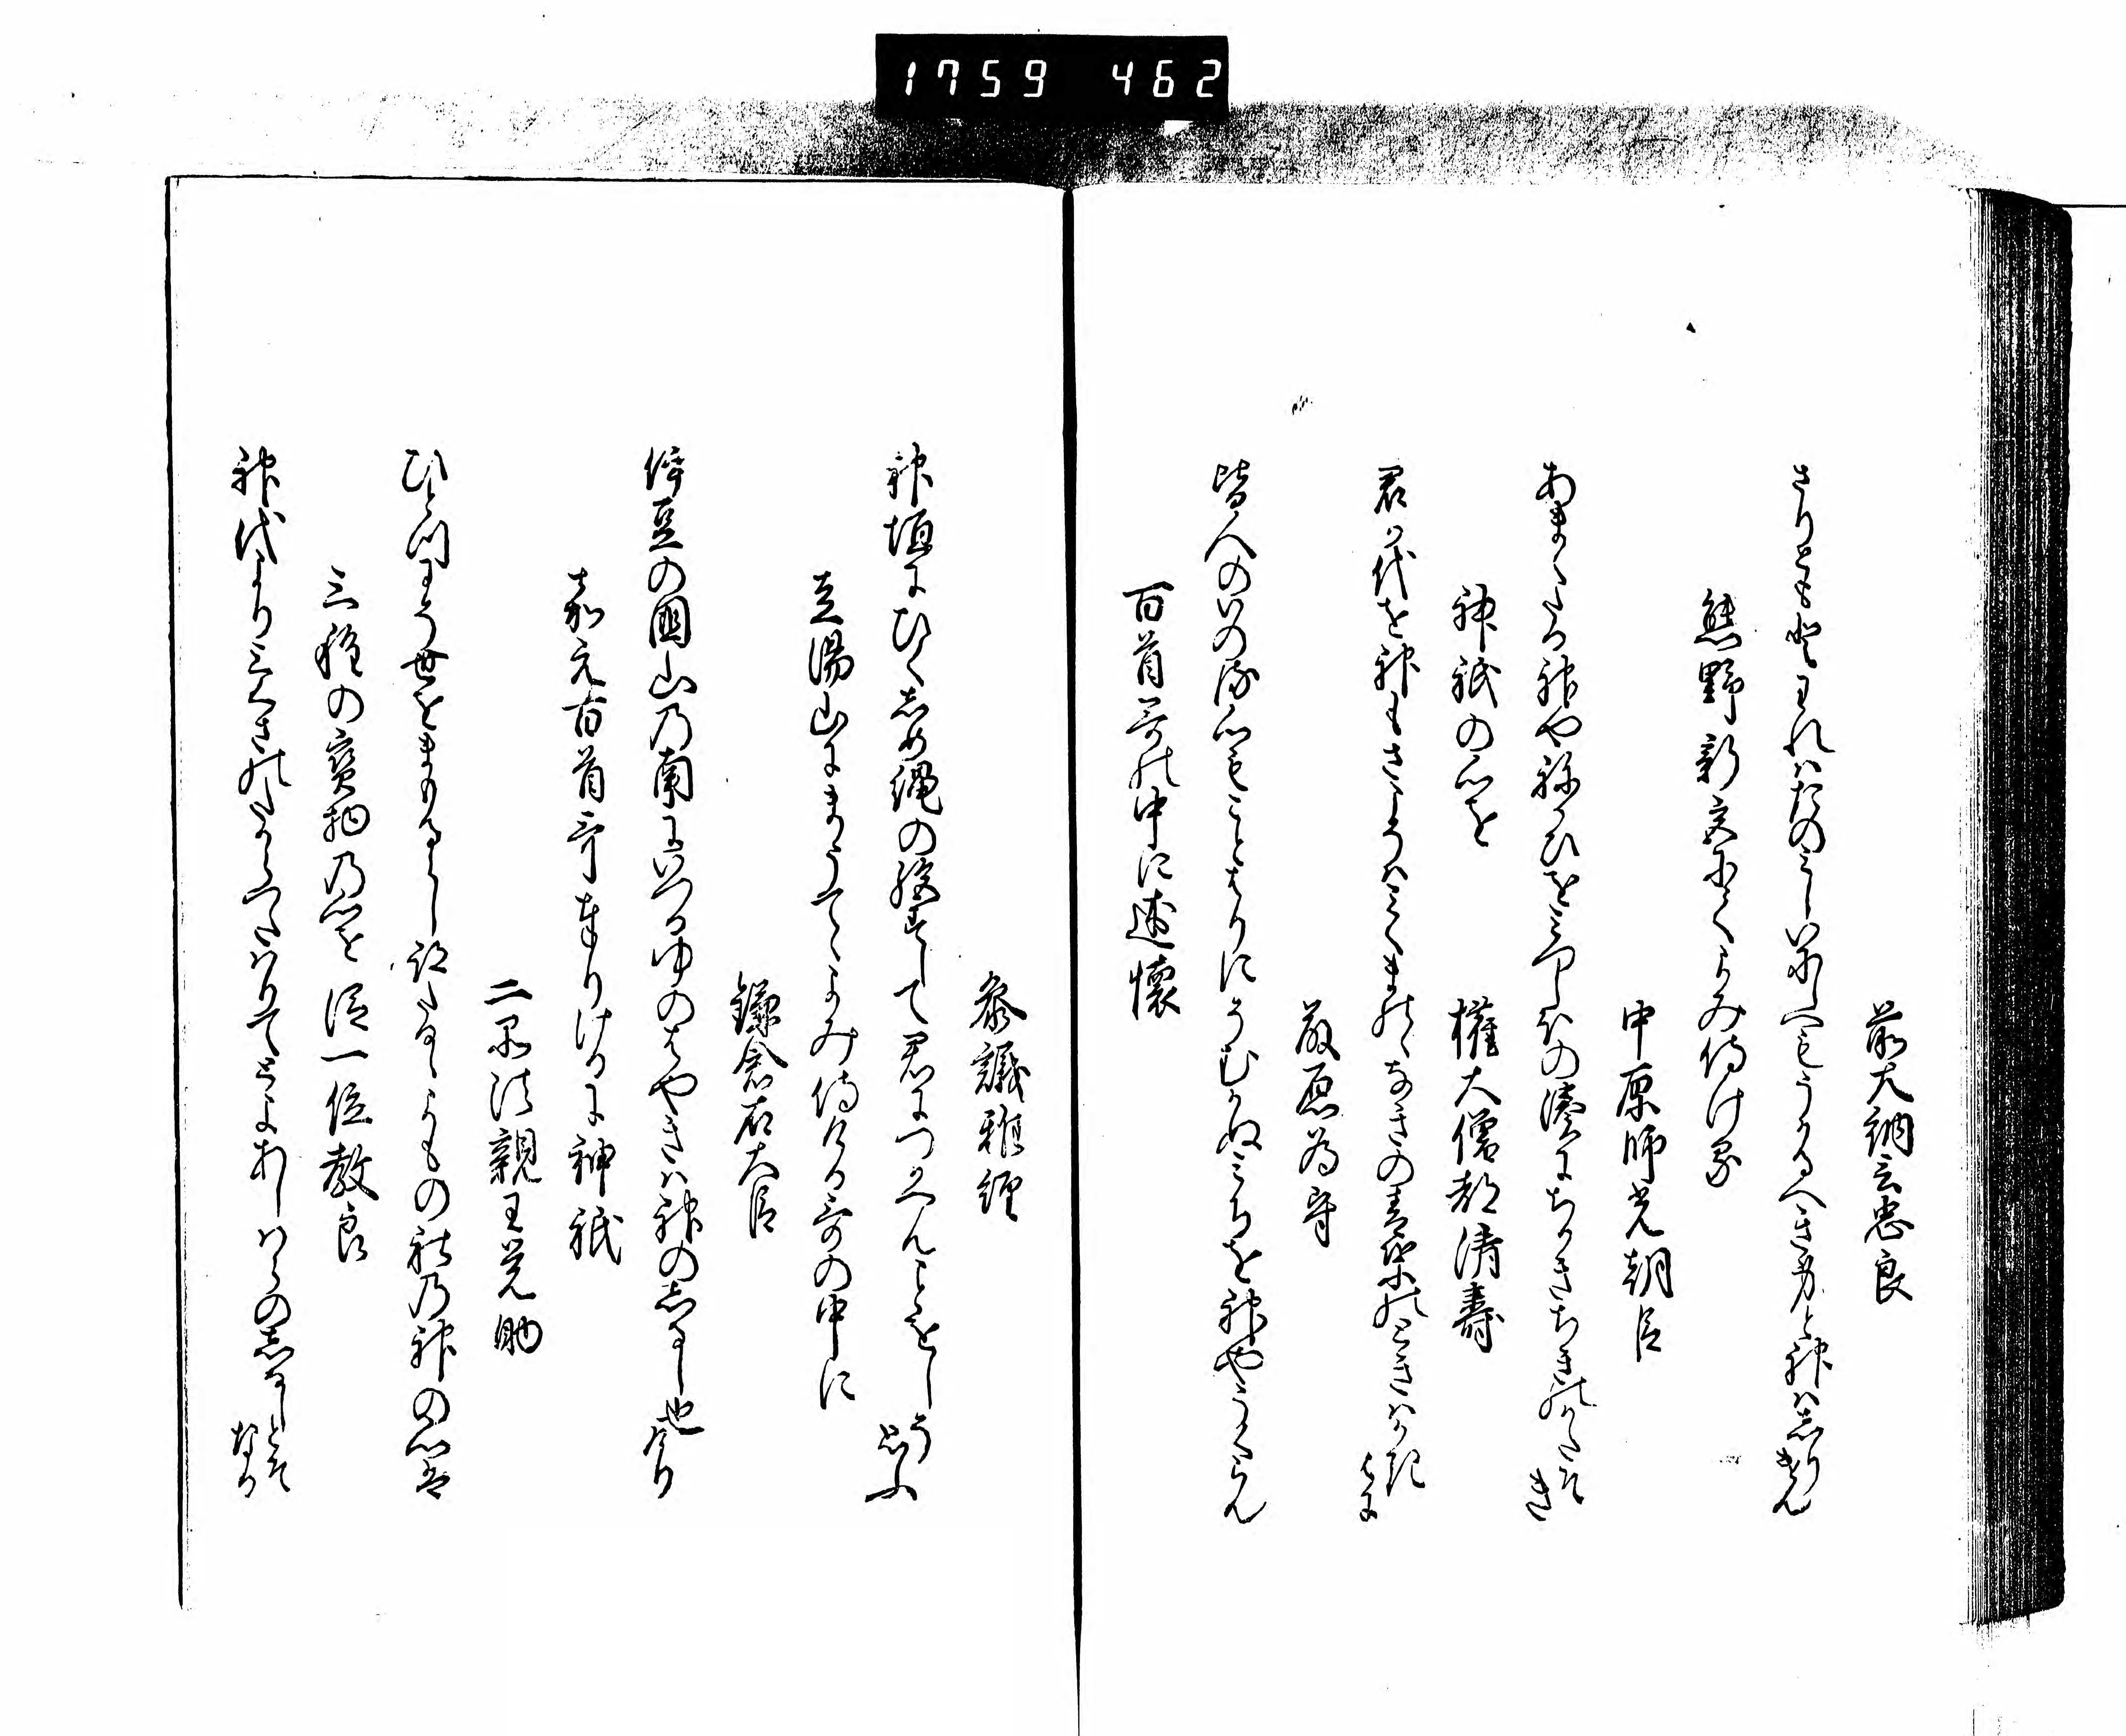 1759 462
前大納言忠良
さりともとわれはたのみしいにしへもうかるへき身と神はしりきん
熊野新宮にてよみ侍ける
中原師光朝臣
あまくたる神やねかひをみつしほの湊にちかきちきのかたそき
神祇の心を
権大僧都清寿
君か代を神もさこそはみくまのゝなきの青葉のときはかきはに
藤原為守
皆人のいのる心もことはりにそむかぬみちを神やうくらん
百首哥の中に述懐
参議雅経
神垣にひくしめ縄の絶すして君につかへんことをしそ思ふ
走湯山にまうてゝよみ侍ける哥の中に
鎌倉右大臣
伊豆の国山の南にいつるゆのはやきは神のしるし也けり
嘉元百首哥奉りけるに神祇
二品法親王覚助
ひとつわう世をまもるらし跡たるゝよもの社の神の心は
三種の宝物の心を
従一位教良
神代より三くさのたからつたはりてとよあしはらのしるしとそなる